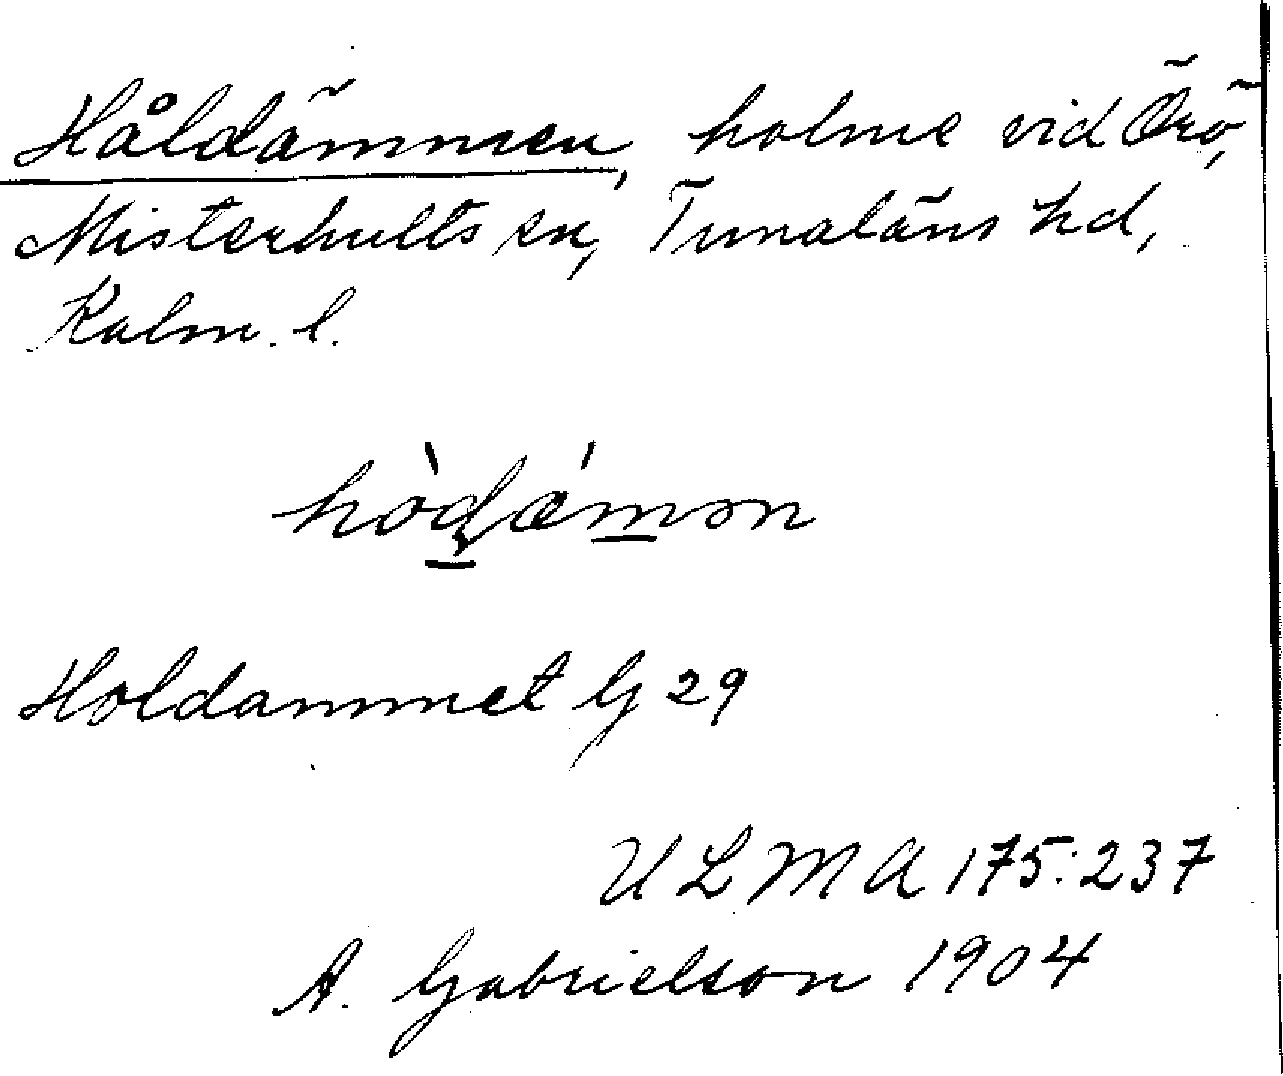 Håldämmen, holme vid Örö,
Misterhults sn, Tunaläns hd,
Kalm. l.
hòḍǽmən
Holdammet G 29
ULMA 175:237
A. Gabrielson 1904